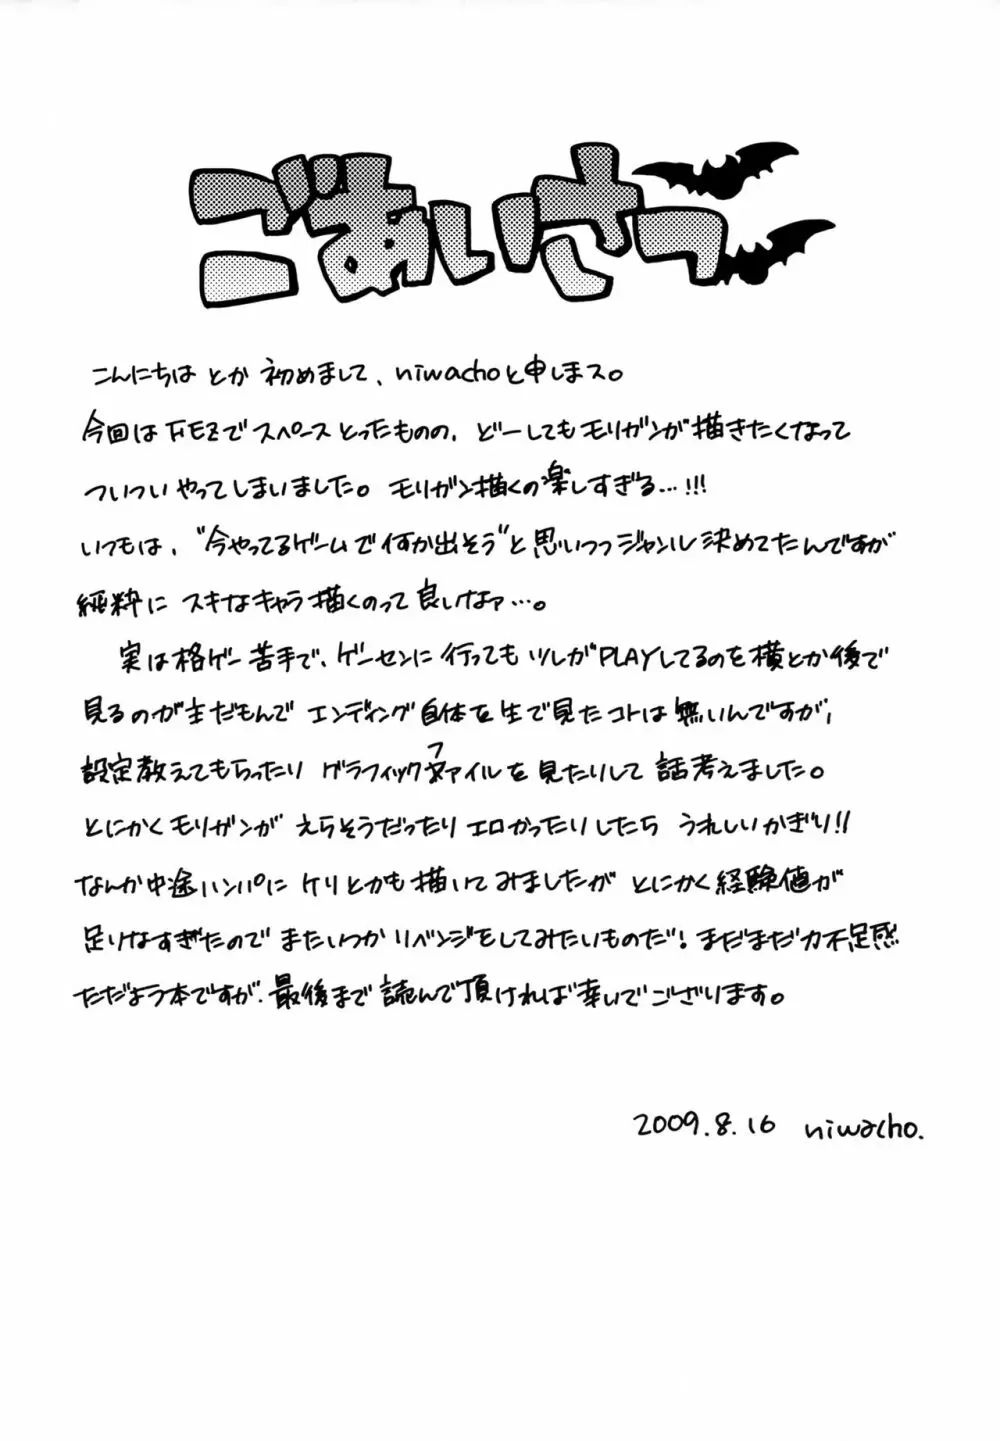 ごあいさつ
こんにちは とか 初めまして、niwachoと申しまス。
今回は FEZで スペース とったものの、どーしても モリガンが 描きたくなって
ついつい やってしまいました。モリガン描くの楽しすぎる…!!!
いつもは、"今やってるゲームで何か出そう"と 思いつつ ジャンル 決めてたんですが
純粋に スキなキャラ 描くのって 良いなァ…。
実は格ゲー 苦手で、ゲーセンに 行っても ツレがPLAYしてるのを 横とか後で
見るのが 主だもんで エンディング 自体を 生で 見たコトは 無いんですが、
設定教えてもらったり グラフィックファイルを 見たりして 話考えました。
とにかく モリガンが えらそうだったり エロかったり したら うれしいかぎり!!
なんか 中途ハンパに ケリとかも 描いて みましたが とにかく 経験値が
足りなすぎたので またいつか リベンジをしてみたいものだ! まだまだ力不足感
ただよう本ですが、最後まで 読んで 頂ければ 幸いで ございます。
2009.8.16 niwacho.